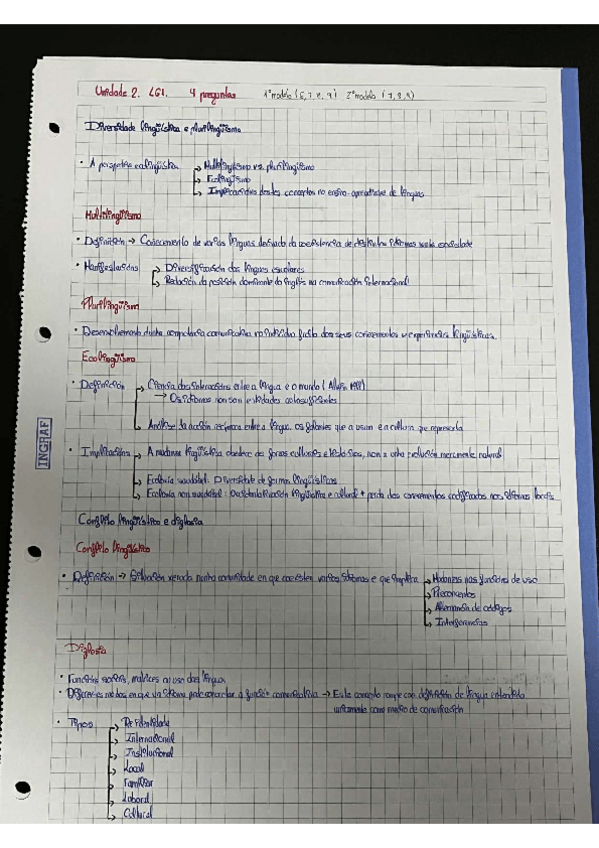 Unidade 2. LG1. 4 preguntas 1º modelo (6, 7, 8, 9) 2º modelo (7, 8, 9)
Diversidade lingüística e plurilingüismo
· A perspectiva ecolingüística → Multilingüismo vs. plurilingüismo
→ Ecolingüismo
→ Implicacións destes conceptos no ensino-aprendizaxe de linguas
Multilingüismo
· Definición → Coñecemento de varias linguas derivado da coexistencia de distintos idiomas nunha sociedade
· Manifestacións → Diversificación das linguas escolares
→ Redución da posición dominante do inglés na comunicación internacional
Plurilingüismo
· Desenvolvemento dunha competencia comunicativa no individuo froito dos seus coñecementos e experiencias lingüísticas.
Ecolingüismo
· Definición → Ciencia das interaccións entre a lingua e o mundo (
→ Os idiomas non son entidades autosuficientes
→ Análise da acción recíproca entre a lingua, os falantes que a usan e a cultura que representa
INGRAF
· Implicacións → A mudanza lingüística obedece a forzas culturais e históricas, non a unha evolución meramente natural
→ Ecoloxía saudable: Diversidade de formas lingüísticas
→ Ecoloxía non saudable: Desidentificación lingüística e cultural + perda dos coñecementos codificados nos idiomas locais
Conflito lingüístico e diglosia
Conflito lingüístico
· Definición → Situación xerada nunha comunidade en que coexisten varios idiomas e que implica → Mudanzas nas funcións de uso
→ Preconceptos
→ Alternancia de códigos
→ Interferencias
Diglosia
· Funcións sociais, matices ao uso das linguas
· Diferentes modos en que un idioma pode concretar a función comunicativa → Este concepto rompe con definición de lingua entendida
unicamente como medio de comunicación
· Tipos → De identidade
→ Internacional
→ Institucional
→ Local
→ Familiar
→ Laboral
→ Cultural